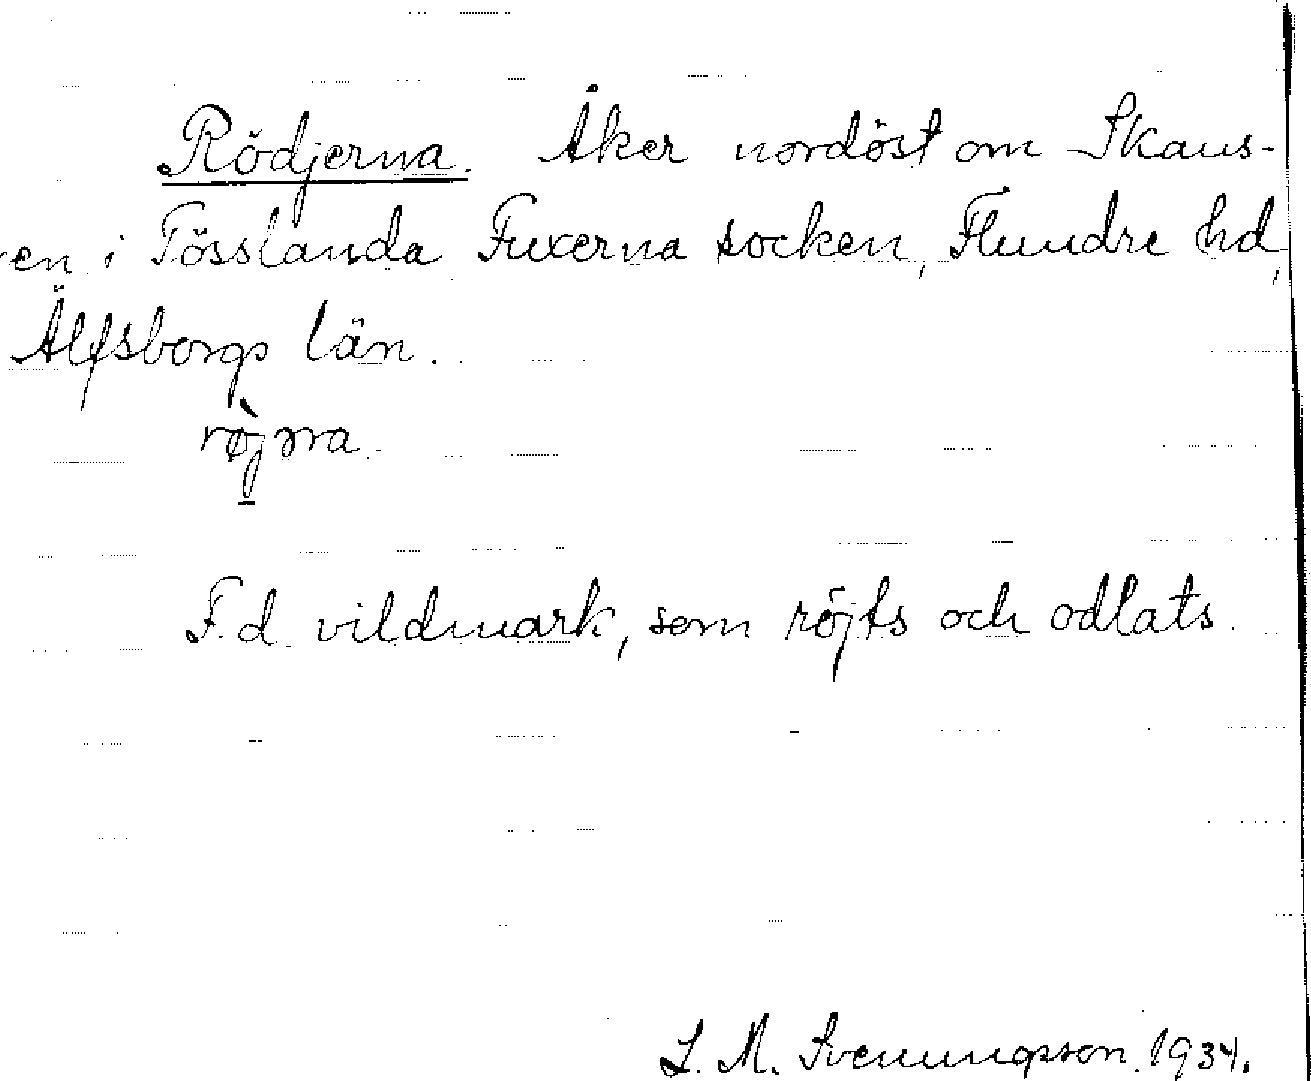 Rödjerna. Åker nordöst om Skaus-
en i Tösslanda Fuxerna socken, Flundre hd,
Älfsborgs län.
röjrra.
F.d. vildmark, som röjts och odlats.
L. M. Svenungsson. 1934.